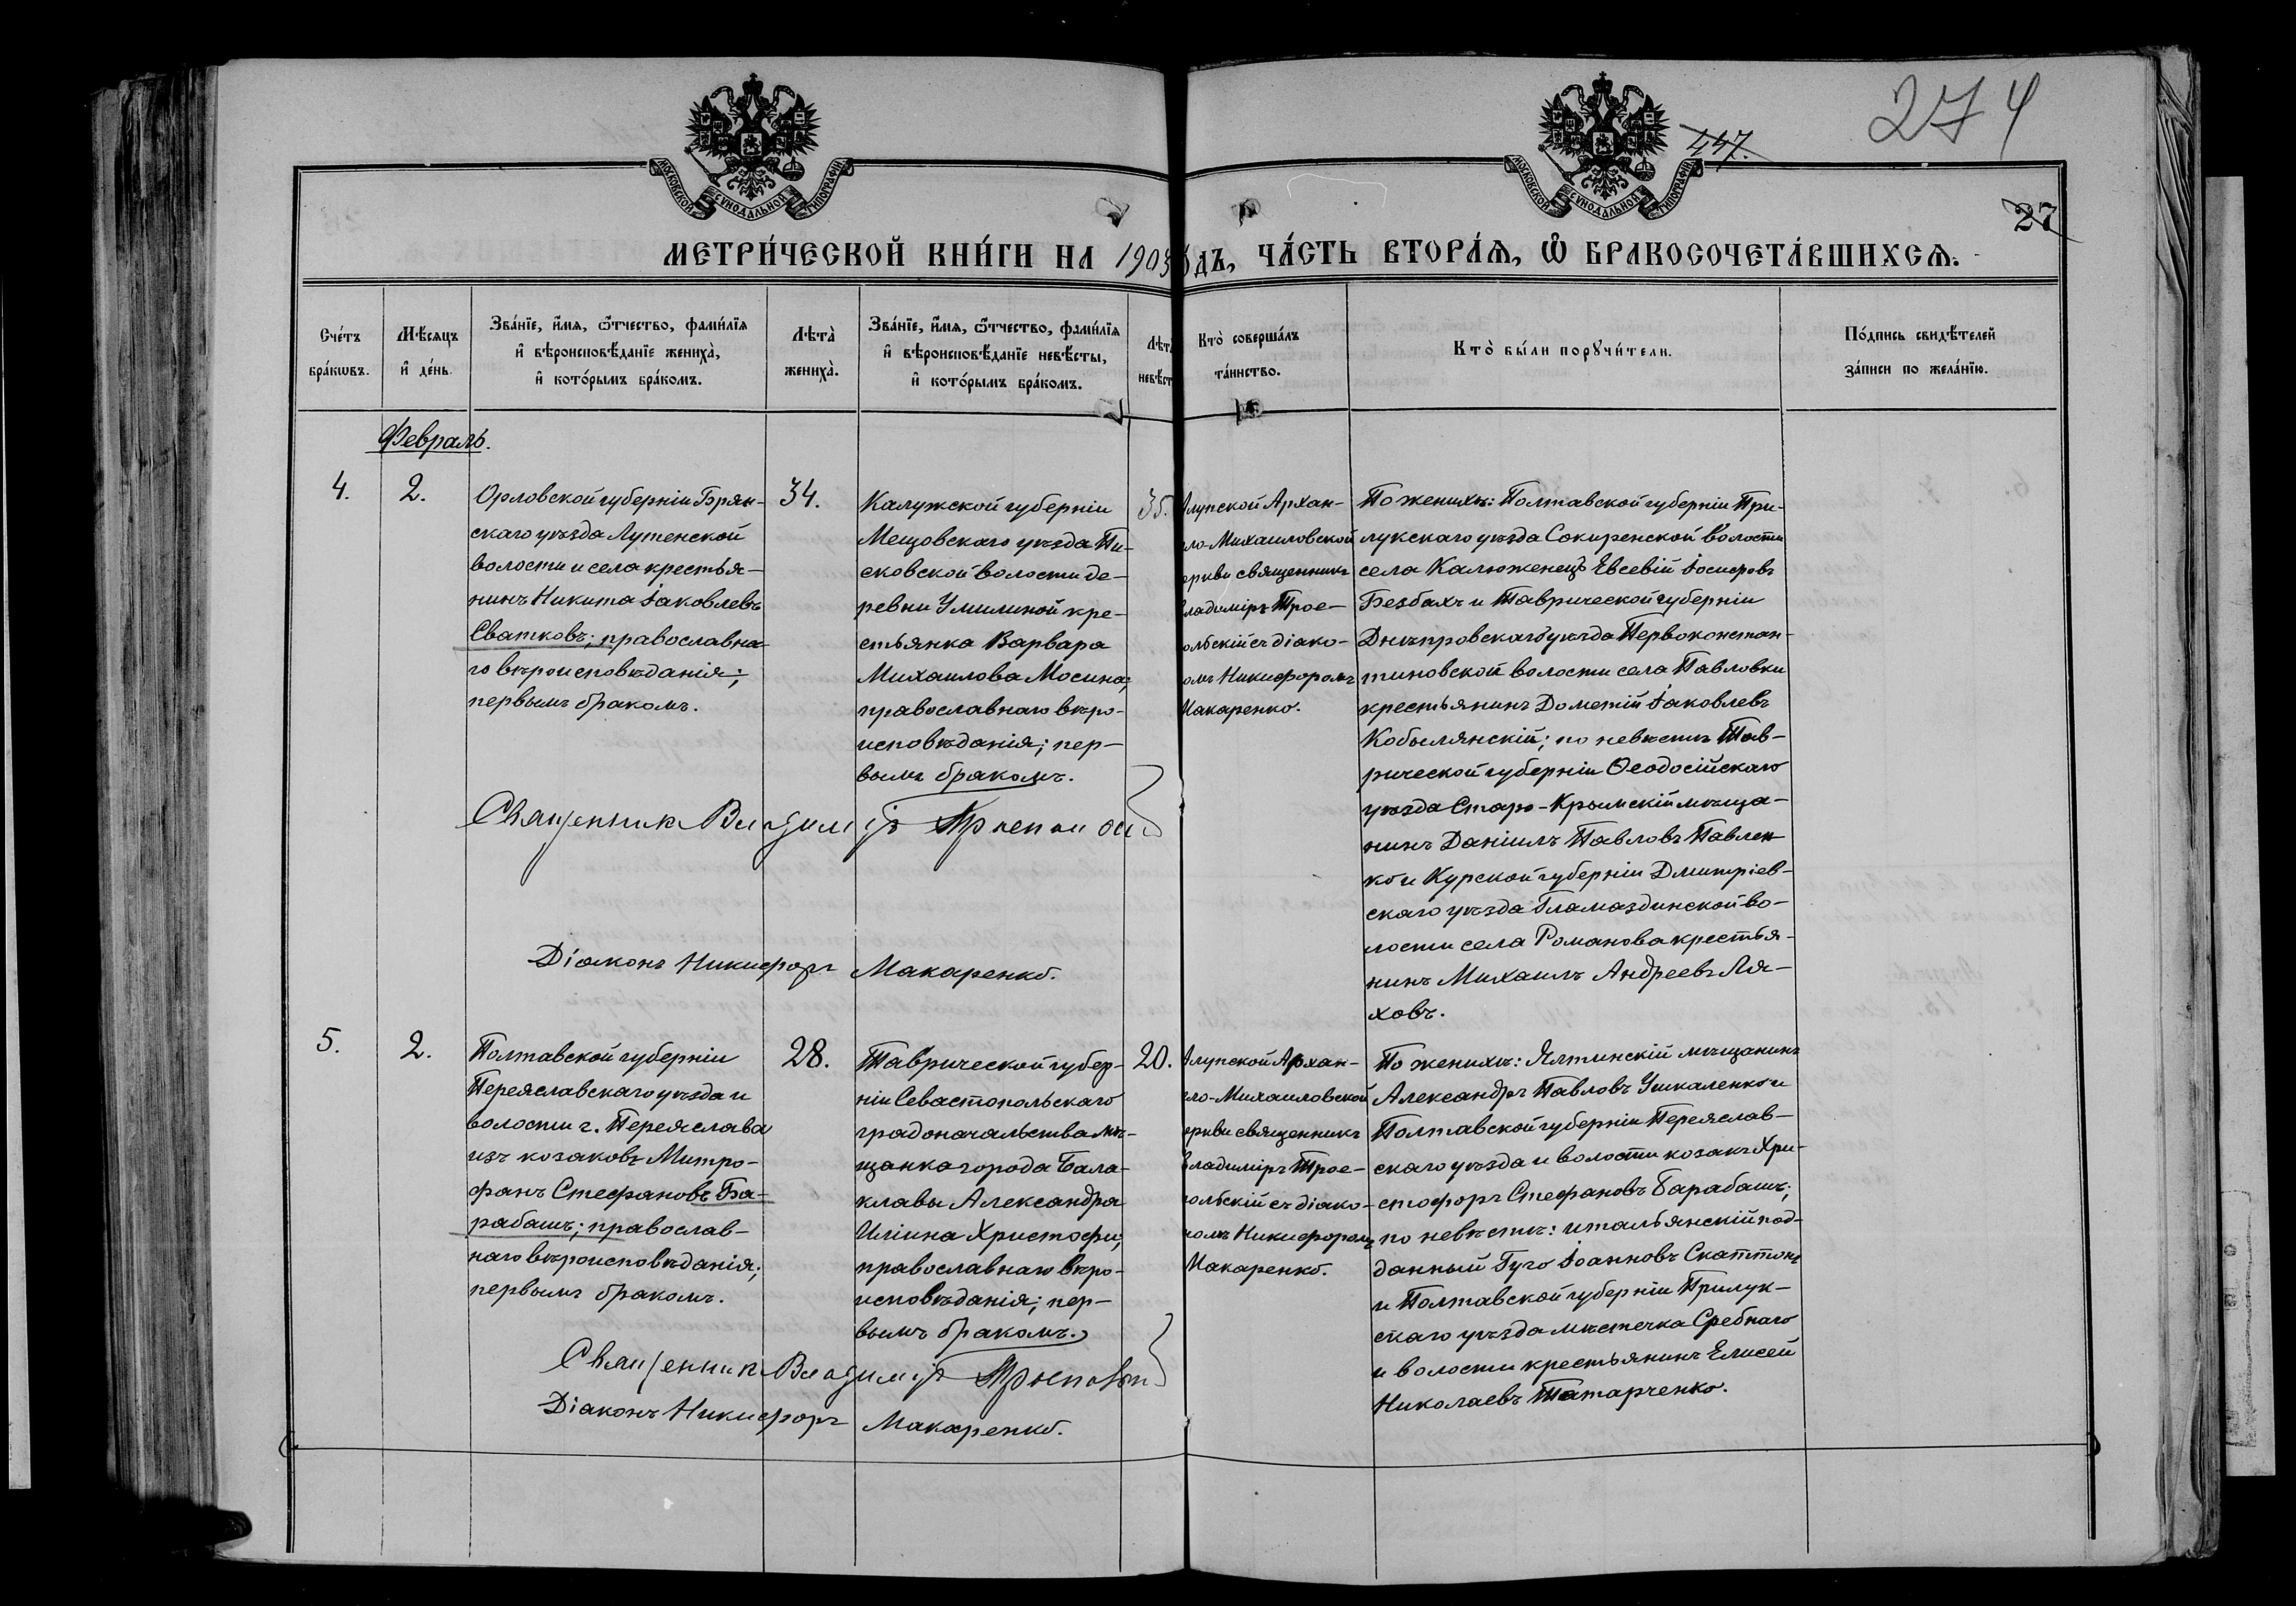 274
447.
27
МОСКОВСКОЙ СѴНОДАЛЬНОЙ ТИПОГРАФІИ
МОСКОВСКОЙ СѴНОДАЛЬНОЙ ТИПОГРАФІИ
МЕТРИ́ЧЕСКОЙ КНИ́ГИ НА 1903 ГÓДЪ, ЧА́СТЬ ВТОРА́Ѧ, Ѽ БРАКОСОЧЕТА́ВШИХСѦ.
Сче́тъ
бра́кѡвъ.
Мѣ́сяцъ
и҆ де́нь.
Зва́нїе, и҆́мѧ, ѻ҆́тчество, фами́лїѧ
и҆ вѣроисповѣ́данїе жениха̀,
и҆ кото́рымъ бра́комъ.
Лѣта̀
жениха̀.
Зва́нїе, и҆́мѧ, ѻ҆́тчество, фами́лїѧ
и҆ вѣроисповѣ́данїе невѣ́сты,
и҆ кото́рымъ бра́комъ.
Лѣт
невѣ́ст
Кто̀ соверша́лъ
та́инство.
Кто̀ бы́ли порꙋчи́тели.
По́дпись свидѣ́телей
за́писи по жела́нїю.
Февраль.
4.
2.
Орловской губерніи Брян-
скаго уѣзда Лутенской
волости и села крестья-
нинъ Никита Іаковлевъ
Сватковъ; православна-
го вѣроисповѣданія;
первымъ бракомъ.
34.
Калужской губерніи
Мещовскаго уѣзда Пи-
сковской волости де-
ревни Умилиной кре-
стьянка Варвара
Михаилова Мосина;
православнаго вѣро-
исповѣданія; пер-
вымъ бракомъ.
35.
Алупской Архан-
ло-Михаиловской
еркви священникъ
владиміръ Трое-
ольскій съ діако-
омъ Никифоромъ
Макаренко.
По женихѣ: Полтавской губерніи При-
лукскаго уѣзда Сокиренской волости
села Калюженецъ Евсевій Іосифовъ
Безбахъ и Таврической губерніи
Днѣпровскаго уѣзда Первоконстан-
тиновской волости села Павловки
крестьянинъ Дометій Іаковлевъ
Кобылянскій; по невѣстѣ Тав-
рической губерніи Ѳеодосійскаго
уѣзда Старо-Крымскій мѣща-
нинъ Даніилъ Павловъ Павлен-
ко и Курской губерніи Дмитріев-
скаго уѣзда Гламаздинской во-
лости села Романова крестья-
нинъ Михаилъ Андреевъ Ля-
ховъ.
Священникъ Владиміръ
Діаконъ Никифоръ Макаренко.
5.
2.
Полтавской губерніи
Переяславскаго уѣзда и
волости г. Переяслава
изъ козаковъ Митро-
фанъ Стефановъ Ба-
рабашъ; православ-
наго вѣроисповѣданія;
первымъ бракомъ.
28.
Таврической губер-
ніи Севастопольскаго
градоначальства мѣ-
щанка города Бала-
клавы Александра
Иліина Христофи;
православнаго вѣро-
исповѣданія; пер-
вымъ бракомъ.
20.
Алупской Архан-
ло-Михаиловской
еркви священникъ
Владиміръ Трое-
польскій съ діако-
номъ Никифоромъ
Макаренко.
По женихѣ: Ялтинскій мѣщанинъ
Александръ Павловъ Ушкаленко и
Полтавской губерніи Переяслав-
скаго уѣзда и волости козакъ Хри-
стофоръ Стефановъ Барабашъ;
по невѣстѣ: итальянскій под-
данный Гуго Іоанновъ Скаттони
и Полтавской губерніи Прилук-
скаго уѣзда мѣстечка Сребнаго
и волости крестьянинъ Елисей
Николаевъ Татарченко.
Священникъ Владиміръ
Діаконъ Никифоръ Макаренко.